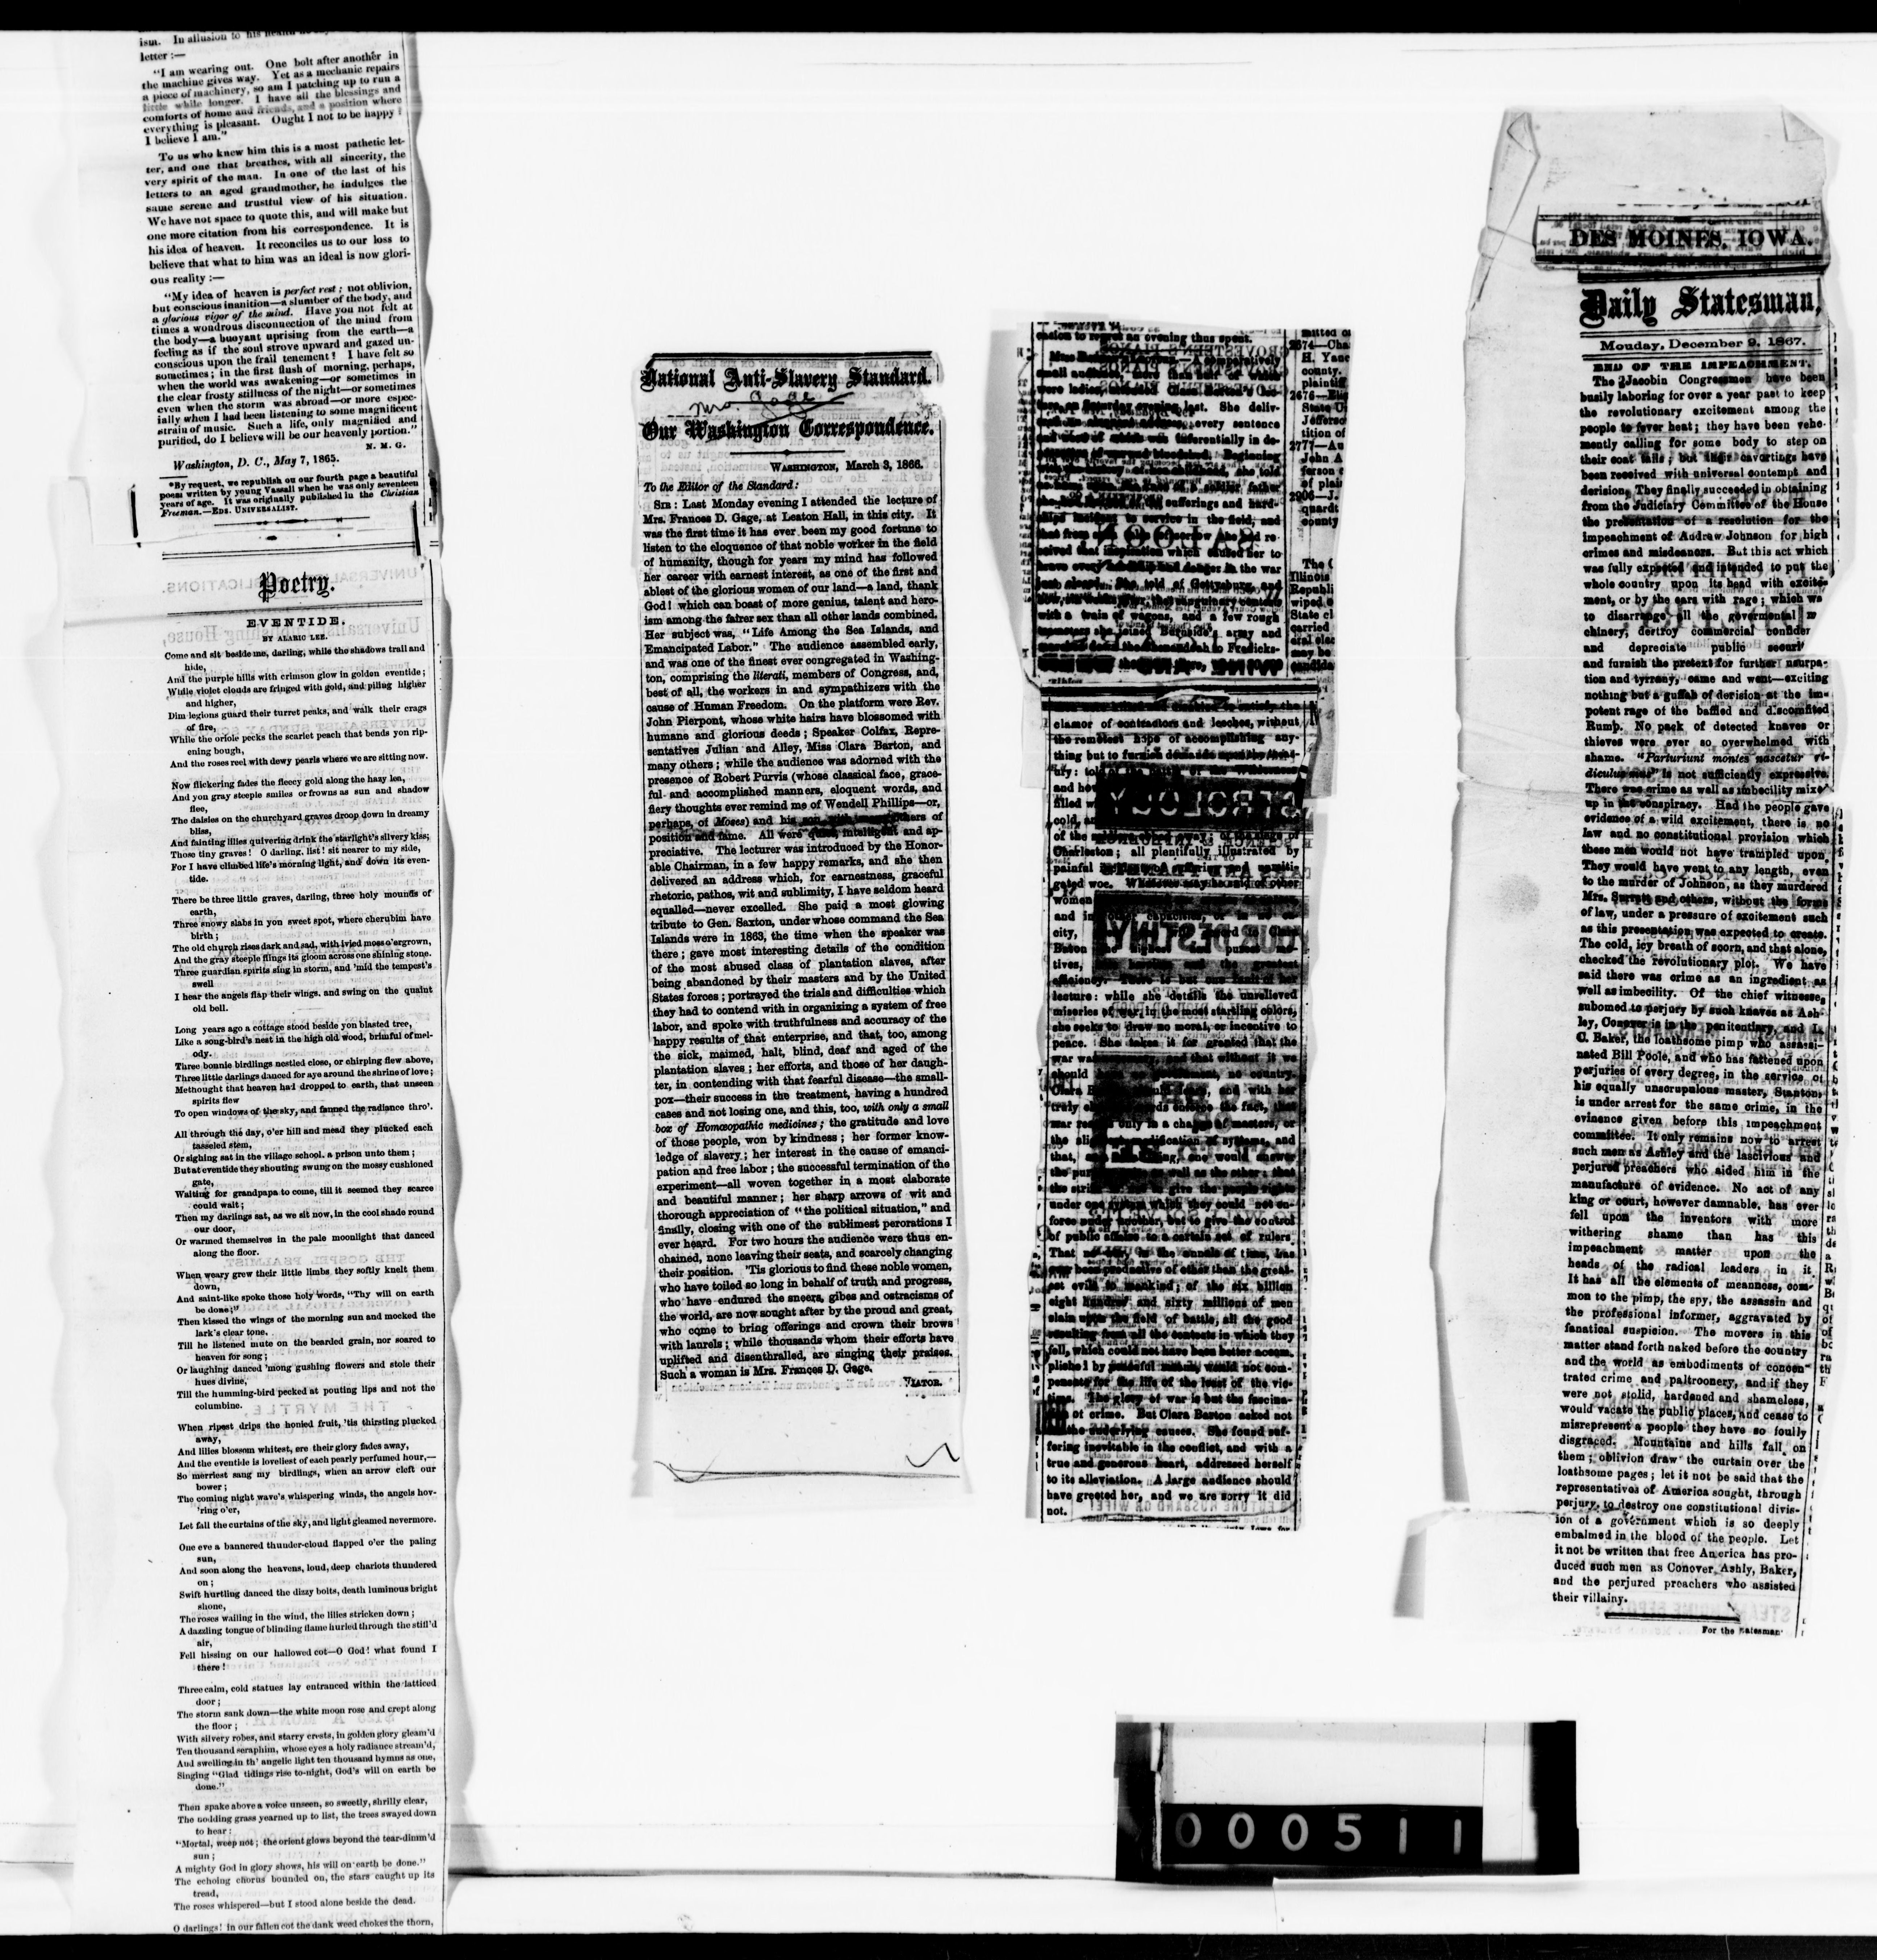 ism. In allusion to his health
letter :—
"I am wearing out. One bolt after another in
the machine gives way. Yet as a mechanic repairs
a piece of machinery, so am I patching up to run a
little while longer. I have all the blessings and
comforts of home and friends, and a position where
everything is pleasant. Ought I not to be happy?
I believe I am."
To us who knew him this is a most pathetic let-
ter, and one that breathes, with all sincerity, the
very spirit of the man. In one of the last of his
letters to an aged grandmother, he indulges the
same serene and trustful view of his situation.
We have not space to quote this, and will make but
one more citation from his correspondence. It is
his idea of heaven. It reconciles us to our loss to
believe that what to him was an ideal is now glori-
ous reality :—
"My idea of heaven is perfect rest; not oblivion,
but conscious inanition—a slumber of the body, and
a glorious vigor of the mind. Have you not felt at
times a wondrous disconnection of the mind from
the body—a buoyant uprising from the earth—a
feeling as if the soul strove upward and gazed un-
conscious upon the frail tenement? I have felt so
sometimes; in the first flush of morning, perhaps,
when the world was awakening—or sometimes in
the clear frosty stillness of the night—or sometimes
even when the storm was abroad—or more espec-
ially when I had been listening to some magnificent
strain of music. Such a life, only magnified and
purified, do I believe will be our heavenly portion."
N. M. G.
Washington, D. C., May 7, 1865.
*By request, we republish on our fourth page a beautiful
poem written by young Vassall when he was only seventeen
years of age. It was originally published in the Christian
Freeman.—EDS. UNIVERSALIST.
Poetry.
EVENTIDE.
BY ALARIC LEE.
Come and sit beside me, darling, while the shadows trail and
hide,
And the purple hills with crimson glow in golden eventide;
While violet clouds are fringed with gold, and piling higher
and higher,
Dim legions guard their turret peaks, and walk their crags
of fire,
While the oriole pecks the scarlet peach that bends yon rip-
ening bough,
And the roses reel with dewy pearls where we are sitting now.
Now flickering fades the fleecy gold along the hazy lea,
And yon gray steeple smiles or frowns as sun and shadow
flee,
The daisies on the churchyard graves droop down in dreamy
bliss,
And fainting lilies quivering drink the starlight's silvery kiss;
Those tiny graves! O darling, list! sit nearer to my side,
For I have climbed life's morning light, and down its even-
tide.
There be three little graves, darling, three holy mounds of
earth,
Three snowy slabs in yon sweet spot, where cherubim have
birth;
The old church rises dark and sad, with ivied moss o'ergrown,
And the gray steeple flings its gloom across one shining stone.
Three guardian spirits sing in storm, and 'mid the tempest's
swell
I hear the angels flap their wings, and swing on the quaint
old bell.
Long years ago a cottage stood beside yon blasted tree,
Like a song-bird's nest in the high old wood, brimful of mel-
ody.
Three bonnie birdlings nestled close, or chirping flew above,
Three little darlings danced for aye around the shrine of love;
Methought that heaven had dropped to earth, that unseen
spirits flew
To open windows of the sky, and fanned the radiance thro'.
All through the day, o'er hill and mead they plucked each
tasseled stem,
Or sighing sat in the village school, a prison unto them;
But at eventide they shouting swung on the mossy cushioned
gate,
Waiting for grandpapa to come, till it seemed they scarce
could wait;
Then my darlings sat, as we sit now, in the cool shade round
our door,
Or warmed themselves in the pale moonlight that danced
along the floor.
When weary grew their little limbs they softly knelt them
down,
And saint-like spoke those holy words, "Thy will on earth
be done;"
Then kissed the wings of the morning sun and mocked the
lark's clear tone,
Till he listened mute on the bearded grain, nor soared to
heaven for song;
Or laughing danced 'mong gushing flowers and stole their
hues divine,
Till the humming-bird pecked at pouting lips and not the
columbine.
When ripest drips the honied fruit, 'tis thirsting plucked
away,
And lilies blossom whitest, ere their glory fades away,
And the eventide is loveliest of each pearly perfumed hour,—
So merriest sang my birdlings, when an arrow cleft our
bower;
The coming night wave's whispering winds, the angels hov-
'ring o'er,
Let fall the curtains of the sky, and light gleamed nevermore.
One eve a bannered thunder-cloud flapped o'er the paling
sun,
And soon along the heavens, loud, deep chariots thundered
on;
Swift hurtling danced the dizzy bolts, death luminous bright
shone,
The roses wailing in the wind, the lilies stricken down;
A dazzling tongue of blinding flame hurled through the still'd
air,
Fell hissing on our hallowed cot—O God! what found I
there!
Three calm, cold statues lay entranced within the latticed
door;
The storm sank down—the white moon rose and crept along
the floor;
With silvery robes, and starry crests, in golden glory gleam'd
Ten thousand seraphim, whose eyes a holy radiance stream'd,
And swelling in th' angelic light ten thousand hymns as one,
Singing "Glad tidings rise to-night, God's will on earth be
done."
Then spake above a voice unseen, so sweetly, shrilly clear,
The nodding grass yearned up to list, the trees swayed down
to hear:
"Mortal, weep not; the orient glows beyond the tear-dimm'd
sun;
A mighty God in glory shows, his will on earth be done."
The echoing chorus bounded on, the stars caught up its
tread,
The roses whispered—but I stood alone beside the dead.
O darlings! in our fallen cot the dank weed chokes the thorn,
National Anti-Slavery Standard.
Mrs. Gage
Our Washington Correspondence.
WASHINGTON, March 3, 1866.
To the Editor of the Standard:
SIR: Last Monday evening I attended the lecture of
Mrs. Frances D. Gage, at Leaton Hall, in this city. It
was the first time it has ever been my good fortune to
listen to the eloquence of that noble worker in the field
of humanity, though for years my mind has followed
her career with earnest interest, as one of the first and
ablest of the glorious women of our land—a land, thank
God! which can boast of more genius, talent and hero-
ism among the fairer sex than all other lands combined.
Her subject was, "Life Among the Sea Islands, and
Emancipated Labor." The audience assembled early,
and was one of the finest ever congregated in Washing-
ton, comprising the literati, members of Congress, and,
best of all, the workers in and sympathizers with the
cause of Human Freedom. On the platform were Rev.
John Pierpont, whose white hairs have blossomed with
humane and glorious deeds; Speaker Colfax, Repre-
sentatives Julian and Alley, Miss Clara Barton, and
many others; while the audience was adorned with the
presence of Robert Purvis (whose classical face, grace-
ful and accomplished manners, eloquent words, and
fiery thoughts ever remind me of Wendell Phillips—or,
perhaps, of Moses) and his son, with many others of
position and fame. All were quiet, intelligent and ap-
preciative. The lecturer was introduced by the Honor-
able Chairman, in a few happy remarks, and she then
delivered an address which, for earnestness, graceful
rhetoric, pathos, wit and sublimity, I have seldom heard
equalled—never excelled. She paid a most glowing
tribute to Gen. Saxton, under whose command the Sea
Islands were in 1863, the time when the speaker was
there; gave most interesting details of the condition
of the most abused class of plantation slaves, after
being abandoned by their masters and by the United
States forces; portrayed the trials and difficulties which
they had to contend with in organizing a system of free
labor, and spoke with truthfulness and accuracy of the
happy results of that enterprise, and that, too, among
the sick, maimed, halt, blind, deaf and aged of the
plantation slaves; her efforts, and those of her daugh-
ter, in contending with that fearful disease—the small-
pox—their success in the treatment, having a hundred
cases and not losing one, and this, too, with only a small
box of Homœopathic medicines; the gratitude and love
of those people, won by kindness; her former know-
ledge of slavery; her interest in the cause of emanci-
pation and free labor; the successful termination of the
experiment—all woven together in a most elaborate
and beautiful manner; her sharp arrows of wit and
thorough appreciation of "the political situation," and
finally, closing with one of the sublimest perorations I
ever heard. For two hours the audience were thus en-
chained, none leaving their seats, and scarcely changing
their position. 'Tis glorious to find these noble women,
who have toiled so long in behalf of truth and progress,
who have endured the sneers, gibes and ostracisms of
the world, are now sought after by the proud and great,
who come to bring offerings and crown their brows
with laurels; while thousands whom their efforts have
uplifted and disenthralled, are singing their praises.
Such a woman is Mrs. Frances D. Gage.
VIATOR.
casion to regret an evening thus spent.
A comparatively
small audience, more than half of whom
were ladies,
on Saturday evening last. She deliv-
every sentence
differentially in de-
Beginning
she told
soldier father
sufferings and hard-
ships incident to service in the field, and
that from
ceived that inspiration which caused her to
brave every hardship and danger in the war
She told of Gettysburg, and
with a train of wagons, and a few rough
teamsters she joined Burnside's army and
to Fredericks-
mitted of
2674—Cha
H. Yanc
county.
plaintiff
2676—
State U
Jefferso
tition of
2777—Au
John A
ferson c
of plain
2906—J.
quardt
county
The C
Illinois
Republi
wiped o
State el
carried
eral elec
may be
candida
clamor of contractors and leeches, without
the remotest hope of accomplishing any-
thing but to furnish demands upon the treas-
ury: told
and ho
filled w
cold, a
of the
Charleston; all plentifully illustrated by
painful
gated woe. Whatever may be said of other
women
and in other capacities,
city,
Barton the highest
tives,
efficiency. There is but one fault in her
lecture: while she details the unrelieved
miseries of war, in the most startling colors,
she seeks to draw no moral, or incentive to
peace. She takes it for granted that the
war was and that without it we
should government, no country.
Clara and with her
truly enforce the fact, that
war only in a change of masters, or
the modification of systems, and
that, one would answer
the as well as the other; that
the give the people rights
under one system which they could not en-
force under another, but to give the control
of public affairs to a certain set of rulers.
That in the annals of time, has
ever been productive of other than the great-
est evils to mankind; of the six billion
eight hundred and sixty millions of men
slain upon the field of battle, all the good
resulting from all the contests in which they
fell, which could not have been better accom-
plished by peaceful means, would not com-
pensate for the life of the least of the vic-
tims. The glory of war is but the fascina-
tion of crime. But Clara Barton asked not
the underlying causes. She found suf-
fering inevitable in the conflict, and with a
true and generous heart, addressed herself
to its alleviation. A large audience should
have greeted her, and we are sorry it did
not.
DES MOINES, IOWA.
Daily Statesman,
Monday, December 9, 1867.
END OF THE IMPEACHMENT.
The Jacobin Congressmen have been
busily laboring for over a year past to keep
the revolutionary excitement among the
people to fever heat; they have been vehe-
mently calling for some body to step on
their coat tails; but their cavortings have
been received with universal contempt and
derision. They finally succeeded in obtaining
from the Judiciary Committee of the House
the presentation of a resolution for the
impeachment of Andrew Johnson for high
crimes and misdeanors. But this act which
was fully expected and intended to put the
whole country upon its head with excite-
ment, or by the ears with rage; which we
to disarrange all the govermental m
chinery, dertroy commercial confider
and depreciate public securi
and furnish the pretext for further usurpa-
tion and tyranny, came and went—exciting
nothing but a guffah of derision at the im-
potent rage of the baffled and discomfited
Rump. No pack of detected knaves or
thieves were ever so overwhelmed with
shame. "Parturiunt montes nascetur ri-
diculus mus" is not sufficiently expressive.
There was crime as well as imbecility mixe
up in the conspiracy. Had the people gave
evidence of a wild excitement, there is no
law and no constitutional provision which
these men would not have trampled upon.
They would have went to any length, even
to the murder of Johnson, as they murdered
Mrs. Surratt and others, without the forms
of law, under a pressure of excitement such
as this presentation was expected to create.
The cold, icy breath of scorn, and that alone,
checked the revolutionary plot. We have
said there was crime as an ingredient as
well as imbecility. Of the chief witnesses,
subomed to perjury by such knaves as Ash-
ley, Conover is in the penitentiary, and L.
C. Baker, the loathsome pimp who assassi-
nated Bill Poole, and who has fattened upon
perjuries of every degree, in the service of
his equally unscrupulous master, Stanton,
is under arrest for the same crime, in the
evinence given before this impeachment
committee. It only remains now to arrest
such men as Ashley and the lascivious and
perjured preachers who aided him in the
manufacture of evidence. No act of any
king or court, however damnable, has ever
fell upon the inventors with more
withering shame than has this
impeachment matter upon the
heads of the radical leaders in it
It has all the elements of meanness, com-
mon to the pimp, the spy, the assassin and
the professional informer, aggravated by
fanatical suspicion. The movers in this
matter stand forth naked before the country
and the world as embodiments of concen-
trated crime and paltroonery, and if they
were not stolid, hardened and shameless,
would vacate the public places, and cease to
misrepresent a people they have so foully
disgraced. Mountains and hills fall on
them; oblivion draw the curtain over the
loathsome pages; let it not be said that the
representatives of America sought, through
perjury, to destroy one constitutional divis-
ion of a government which is so deeply
embalmed in the blood of the people. Let
it not be written that free America has pro-
duced such men as Conover, Ashly, Baker,
and the perjured preachers who assisted
their villainy.
For the Statesman
000511